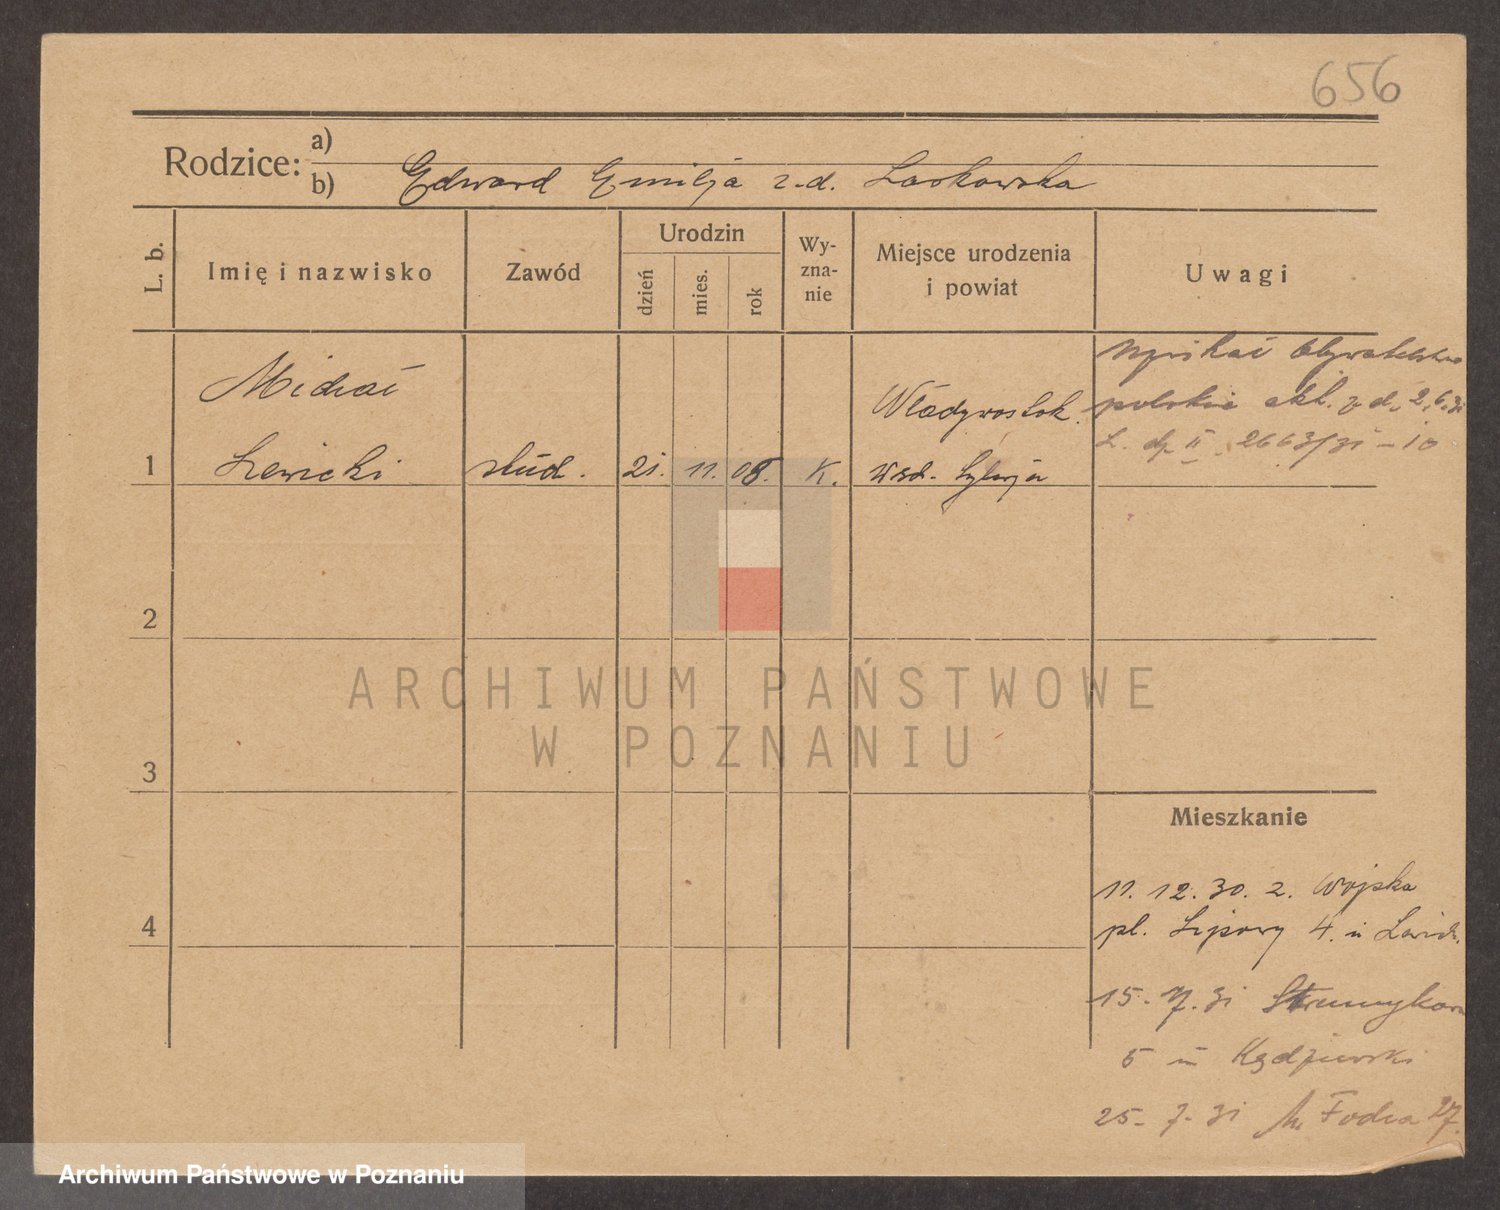 656
Rodzice: a)
b) Edward Emilja z-d. Laskowska
L. b.
Imię i nazwisko
Zawód
Urodzin
dzień
mies.
rok
Wy-
zna-
nie
Miejsce urodzenia
i powiat
Uwagi
Michał
Lewicki
1
stud.
21.
11.
08.
K.
Władywostok
wsd. Syberja
obywatelstwo
polskie z d. 2.6.31
L. dz. II 2663/31 - 10
2
3
4
ARCHIWUM PAŃSTWOWE
W POZNANIU
Mieszkanie
11. 12. 30. z. Wojska
pl. Lipowy 4. u
15. 7. 31 Strumykowa
5 u
25. 7. 31 M. Focha 27.
Archiwum Państwowe w Poznaniu